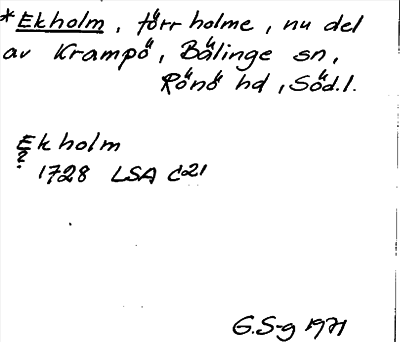 *Ekholm, förr holme, nu del
av Krampö, Bälinge sn,
Rönö hd, Söd.l.
Ekholm
?
1728 LSA C21
G.S-g 1971